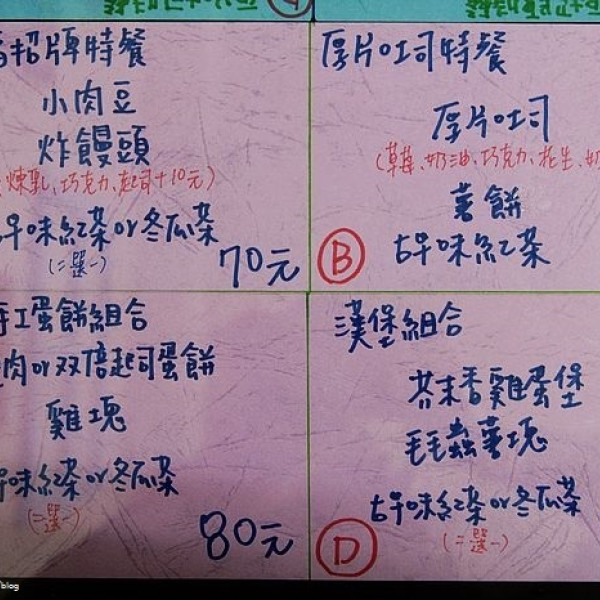 招牌特餐
小肉豆
炸饅頭
煉乳、巧克力、起司+10元)
早味紅茶or冬瓜茶
(二選一)
70元
厚片吐司特餐
厚片吐司
(草莓、奶油、巧克力、花生、奶
薯餅
B
古早味紅茶
工蛋餅組合
肉or双倍起司蛋餅
雞塊
早味紅茶or冬瓜茶
(二選一)
80元
漢堡組合
芥末香雞蛋堡
毛毛蟲薯塊
古早味紅茶or冬瓜茶
(二選一)
D
blog